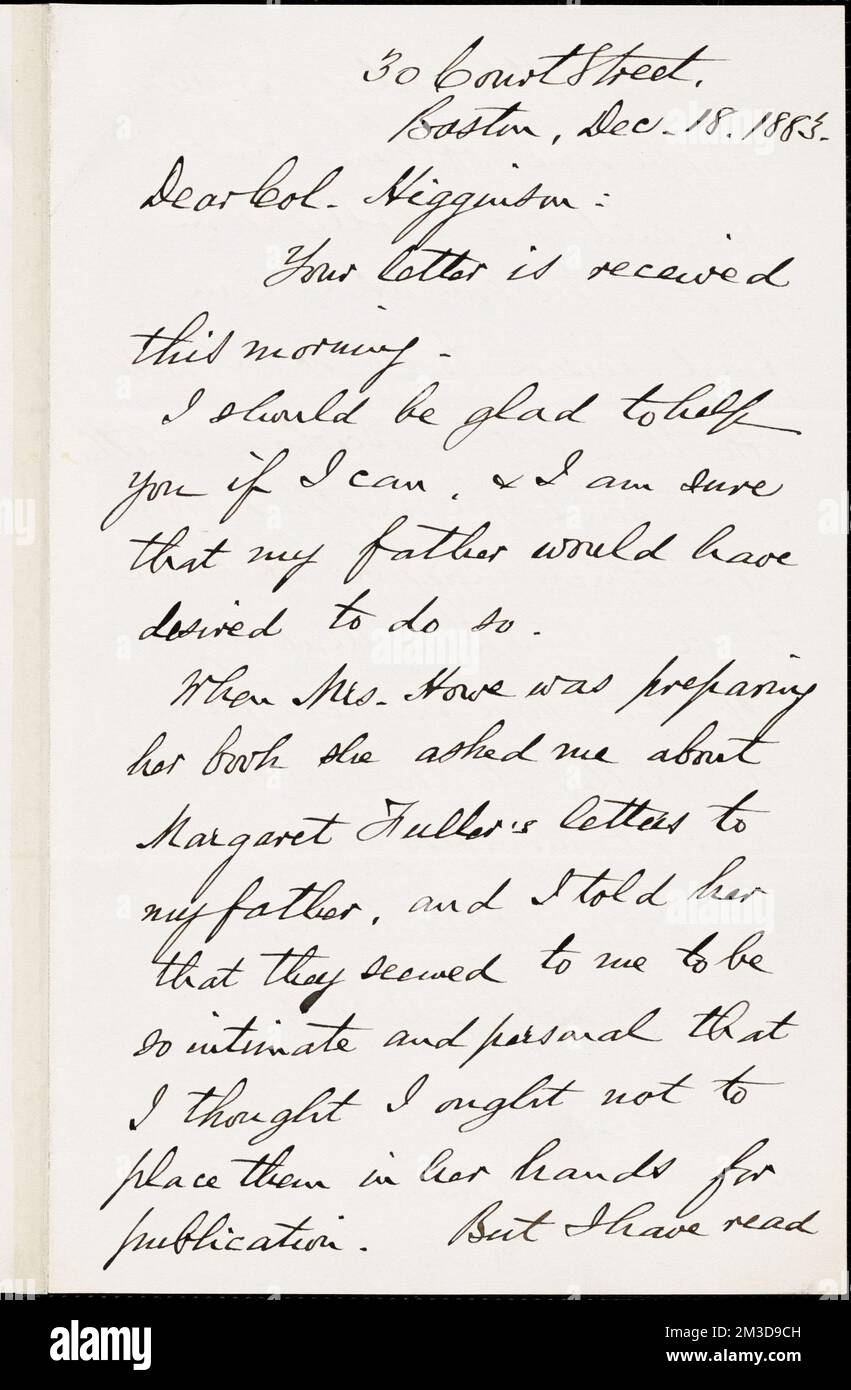 30 Court Street.
Boston, Dec. 18. 1883.
Dear Col. Higginson:
Your letter is received
this morning.
I should be glad to help
you if I can, & I am sure
that my father would have
desired to do so.
When Mrs. Howe was preparing
her book she asked me about
Margaret Fuller's letters to
my father, and I told her
that they seemed to me to be
so intimate and personal that
I thought I ought not to
place them in her hands for
publication. But I have read
alamy
Image ID: 2M3D9CH
www.alamy.com